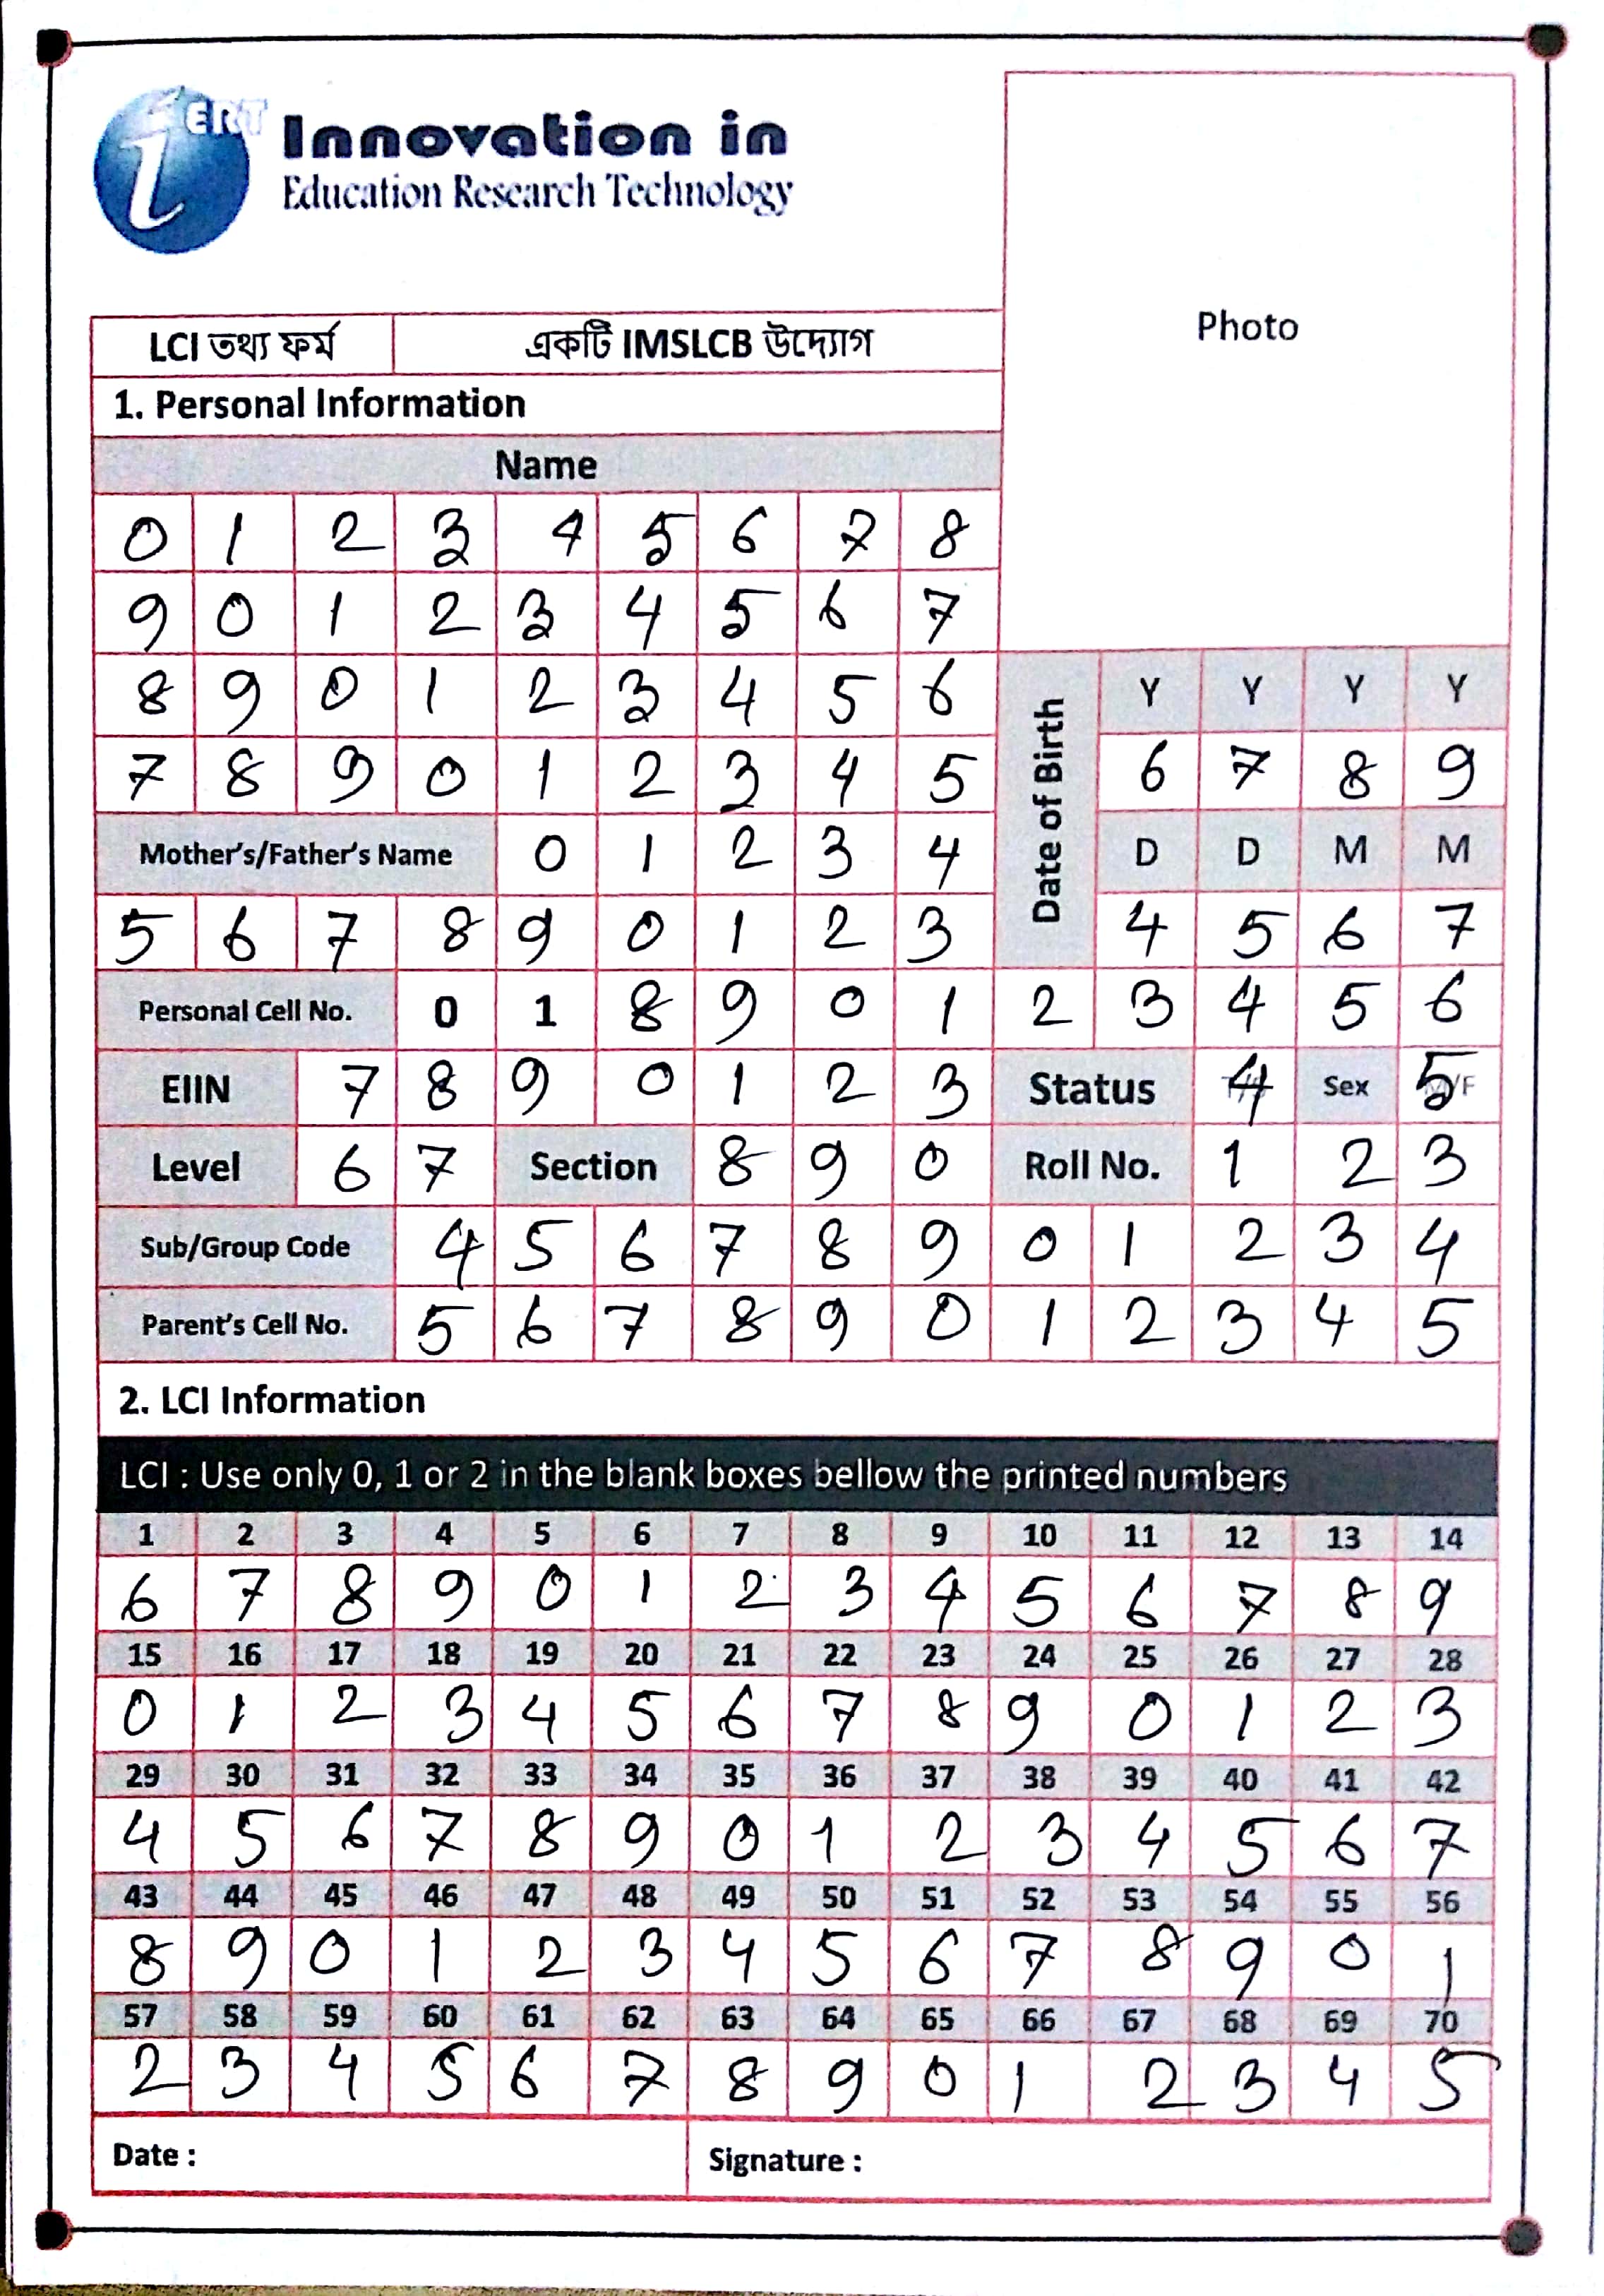 iERT Innovation in
Education Research Technology
Photo
LCI তথ্য ফর্ম একটি IMSLCB উদ্যোগ
1. Personal Information
Name
0 1 2 3 4 5 6 7 8
9 0 1 2 3 4 5 6 7
8 9 0 1 2 3 4 5 6
7 8 9 0 1 2 3 4 5
Date of Birth
Y Y Y Y
6 7 8 9
D D M M
4 5 6 7
Mother's/Father's Name 0 1 2 3 4
5 6 7 8 9 0 1 2 3
Personal Cell No. 0 1 8 9 0 1 2 3 4 5 6
EIIN 7 8 9 0 1 2 3 Status 4 Sex 5 M/F
Level 6 7 Section 8 9 0 Roll No. 1 2 3
Sub/Group Code 4 5 6 7 8 9 0 1 2 3 4
Parent's Cell No. 5 6 7 8 9 0 1 2 3 4 5
2. LCI Information
LCI : Use only 0, 1 or 2 in the blank boxes bellow the printed numbers
1 2 3 4 5 6 7 8 9 10 11 12 13 14
6 7 8 9 0 1 2 3 4 5 6 7 8 9
15 16 17 18 19 20 21 22 23 24 25 26 27 28
0 1 2 3 4 5 6 7 8 9 0 1 2 3
29 30 31 32 33 34 35 36 37 38 39 40 41 42
4 5 6 7 8 9 0 1 2 3 4 5 6 7
43 44 45 46 47 48 49 50 51 52 53 54 55 56
8 9 0 1 2 3 4 5 6 7 8 9 0 1
57 58 59 60 61 62 63 64 65 66 67 68 69 70
2 3 4 5 6 7 8 9 0 1 2 3 4 5
Date : Signature :